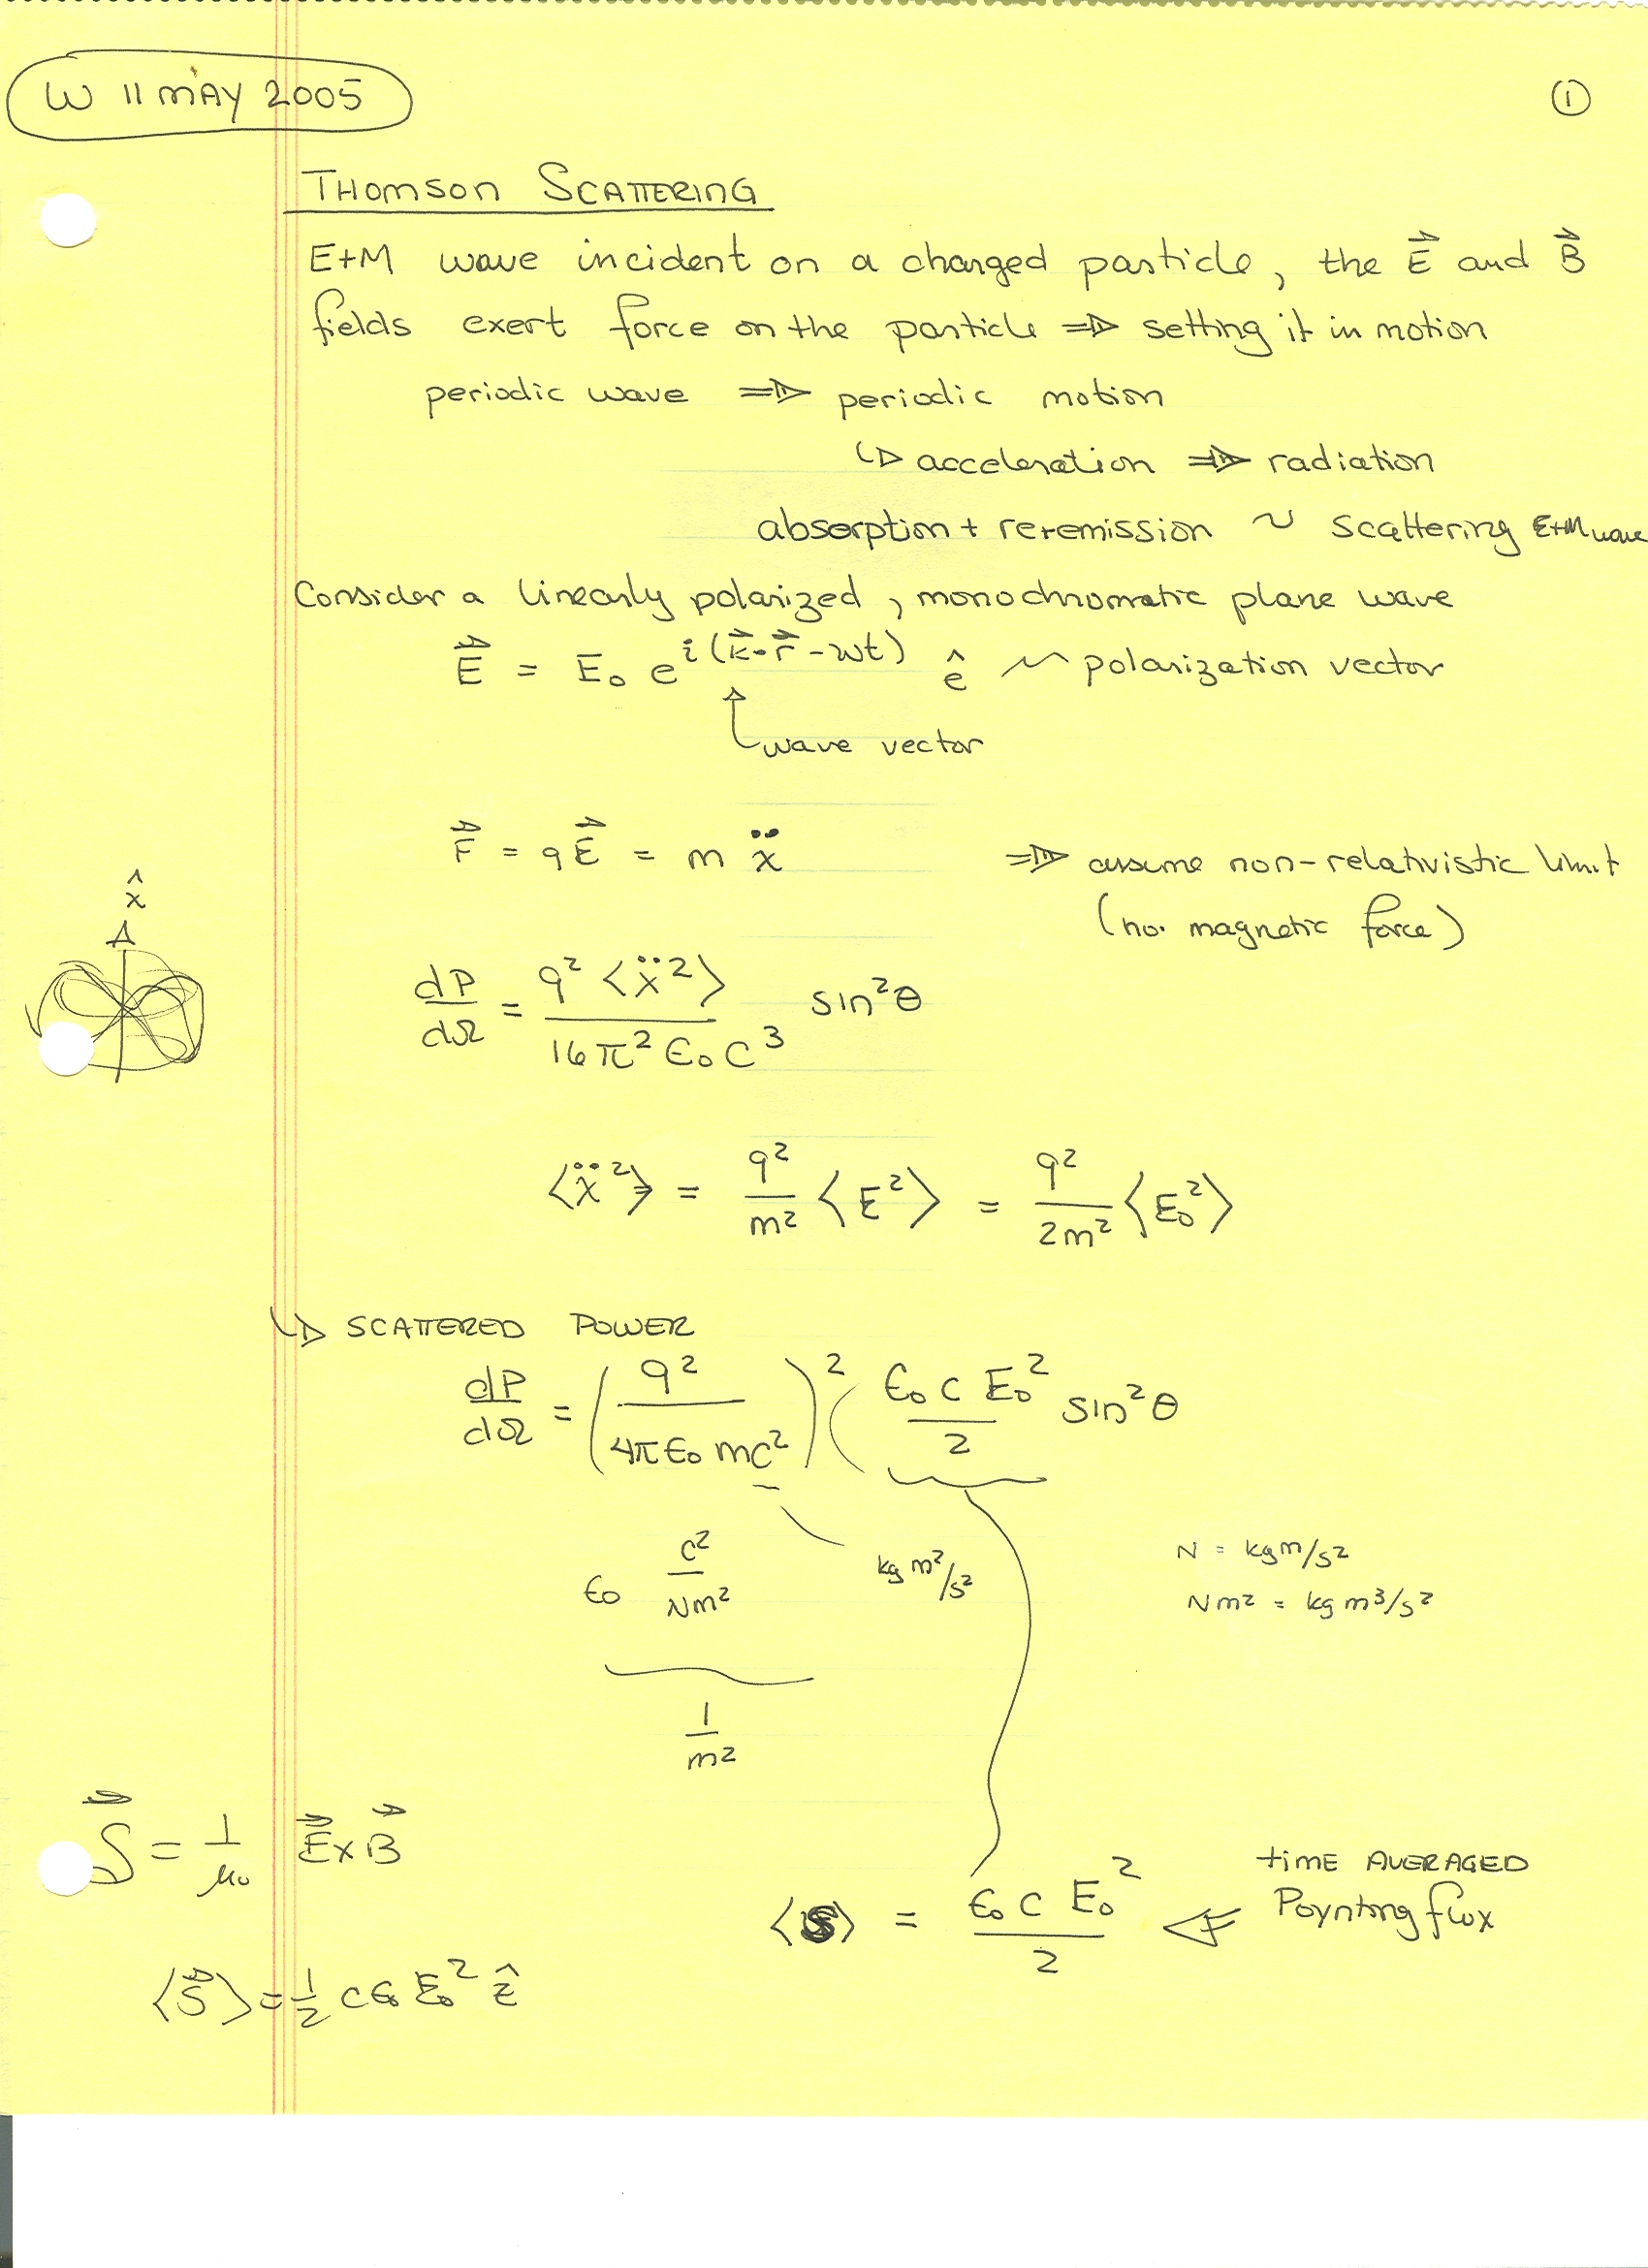 W 11 MAY 2005
①
THOMSON SCATTERING
E+M wave incident on a charged particle, the E⃗ and B⃗
fields exert force on the particle ⇒ setting it in motion
periodic wave ⇒ periodic motion
↳ acceleration ⇒ radiation
absorption + re-emission ~ scattering E+M wave
Consider a linearly polarized, monochromatic plane wave
E⃗ = E₀ e^{i(k⃗·r⃗ - ωt)} ê ~ polarization vector
↑ wave vector
F⃗ = qE⃗ = m ẍ ⇒ assume non-relativistic limit
(no magnetic force)
x̂
dP/dΩ = q² <ẍ²> / 16π² ε₀ c³ sin²θ
<ẍ²> = q²/m² <E²> = q²/2m² <E₀²>
↳ SCATTERED POWER
dP/dΩ = (q² / 4π ε₀ mc²)² (ε₀ c E₀² / 2 sin²θ
ε₀ C²/Nm²
kg m²/s²
N = kg m/s²
Nm² = kg m³/s²
1/m²
S⃗ = 1/μ₀ E⃗ x B⃗
<S> = ε₀ c E₀² / 2 ⇐ TIME AVERAGED
Poynting flux
<S⃗> = 1/2 c ε₀ E₀² ẑ